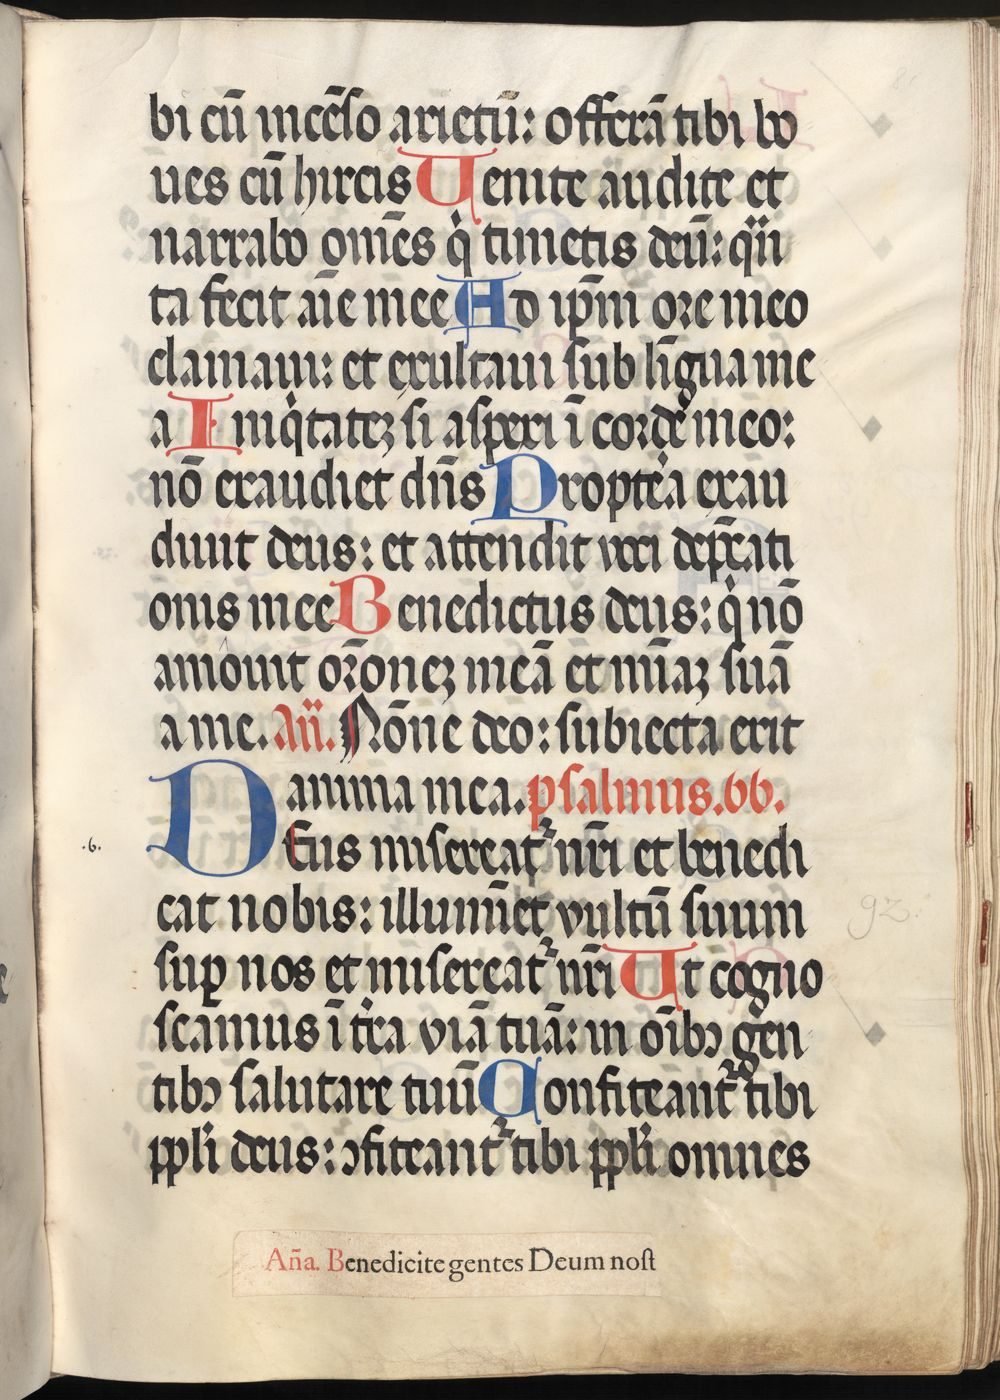 bi cū incēso arietū: offerā tibi bo
ues cū hircis Uenite audite et
narrabo om̄es q̇ timetis deū: q̈ñ
ta fecit aīe mee Ad ip̄m ore meo
clamaui: et exultaui sub līgua me
a Iniq̇tatēꝫ si aspexi ī corde meo:
nō exaudiet dn̄s Propteͣa exau
diuit deus: et attendit voci dep̄cati
onis mee Benedictus deus: q̇ nō
amouit or̄oneꝫ meā et mīaꝫ suā
a me. Añ. Nōne deo: subiecta erit
anima mea. psalmus. 66.
.6.
DEus misereatᷣ nr̄i et benedi
cat nobis: illumīet vultū suum
suꝑ nos et misereatᷣ nr̄i Ut cogno
scamus ī tr̄a viā tuā: in oībꝰ gen
tibꝰ salutare tuū Confiteantᷣ tibi
ppl̄i deus: ꝯfiteantᷣ tibi ppl̄i omnes
92.
Añа. Benedicite gentes Deum nost